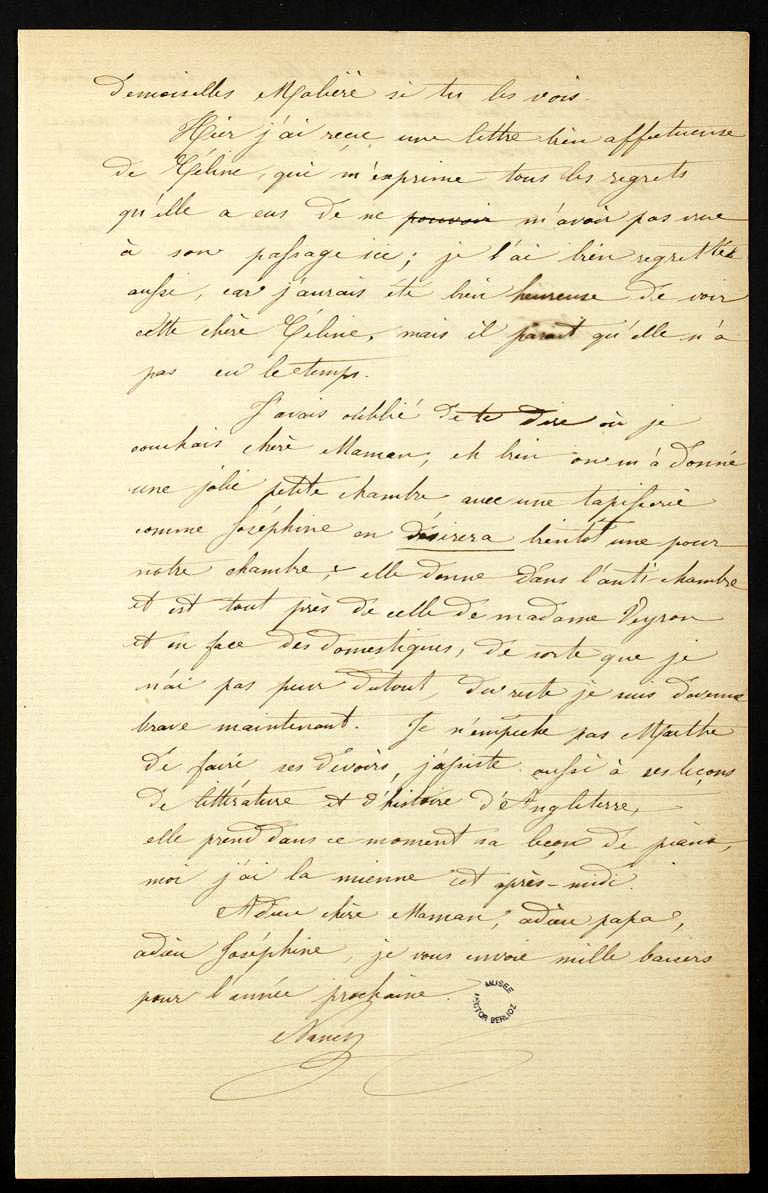 Demoiselles Molière si tu les vois.
Hier j'ai reçu une lettre bien affectueuse
de Céline, qui m'exprime tous les regrets
qu'elle a eus de ne pouvoir m'avoir pas vue
à son passage ici; je l'ai bien regrettée
aussi, car j'aurais été bien heureuse de voir
cette chère Céline, mais il parait qu'elle n'a
pas eu le temps.
J'avais oublié de te dire où je
couchais chère Maman, eh bien on m'a donné
une jolie petite chambre avec une tapisserie
comme Joséphine en désirera bientôt une pour
notre chambre; elle donne dans l'anti chambre
et est tout près de celle de madame Veyron
et en face des domestiques, de sorte que je
n'ai pas peur dutout, du reste je suis devenue
brave maintenant. Je n'empêche pas Marthe
de faire ses devoirs, j'assiste aussi à ses leçons
de littérature et d'histoire d'Angleterre,
elle prend dans ce moment sa leçon de piano,
moi j'ai la mienne cet après-midi.
Adieu chère Maman, adieu papa,
adieu Joséphine, je vous envoie mille baisers
pour l'année prochaine.
Nancy
MUSEE
HECTOR BERLIOZ